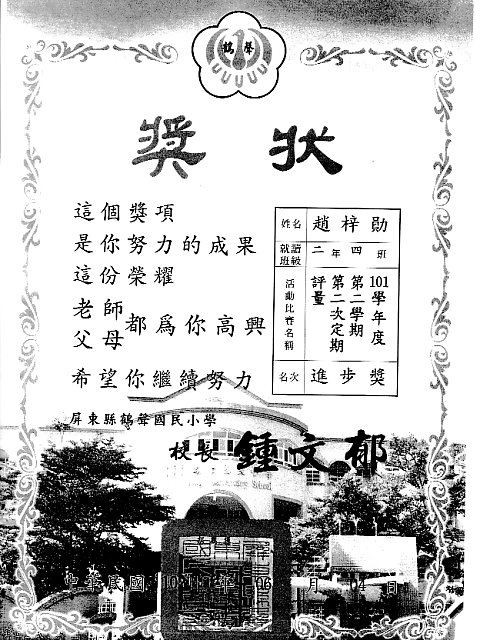 鶴聲
獎狀
這個獎項
是你努力的成果
這份榮耀
老師
父母
都為你高興
希望你繼續努力
姓名 趙梓勛
就讀班級 二年四班
活動比賽名稱
101學年度
第二學期
第二次定期
評量
名次 進步獎
屏東縣鶴聲國民小學
校長 鍾文郁
中華民國
月
日